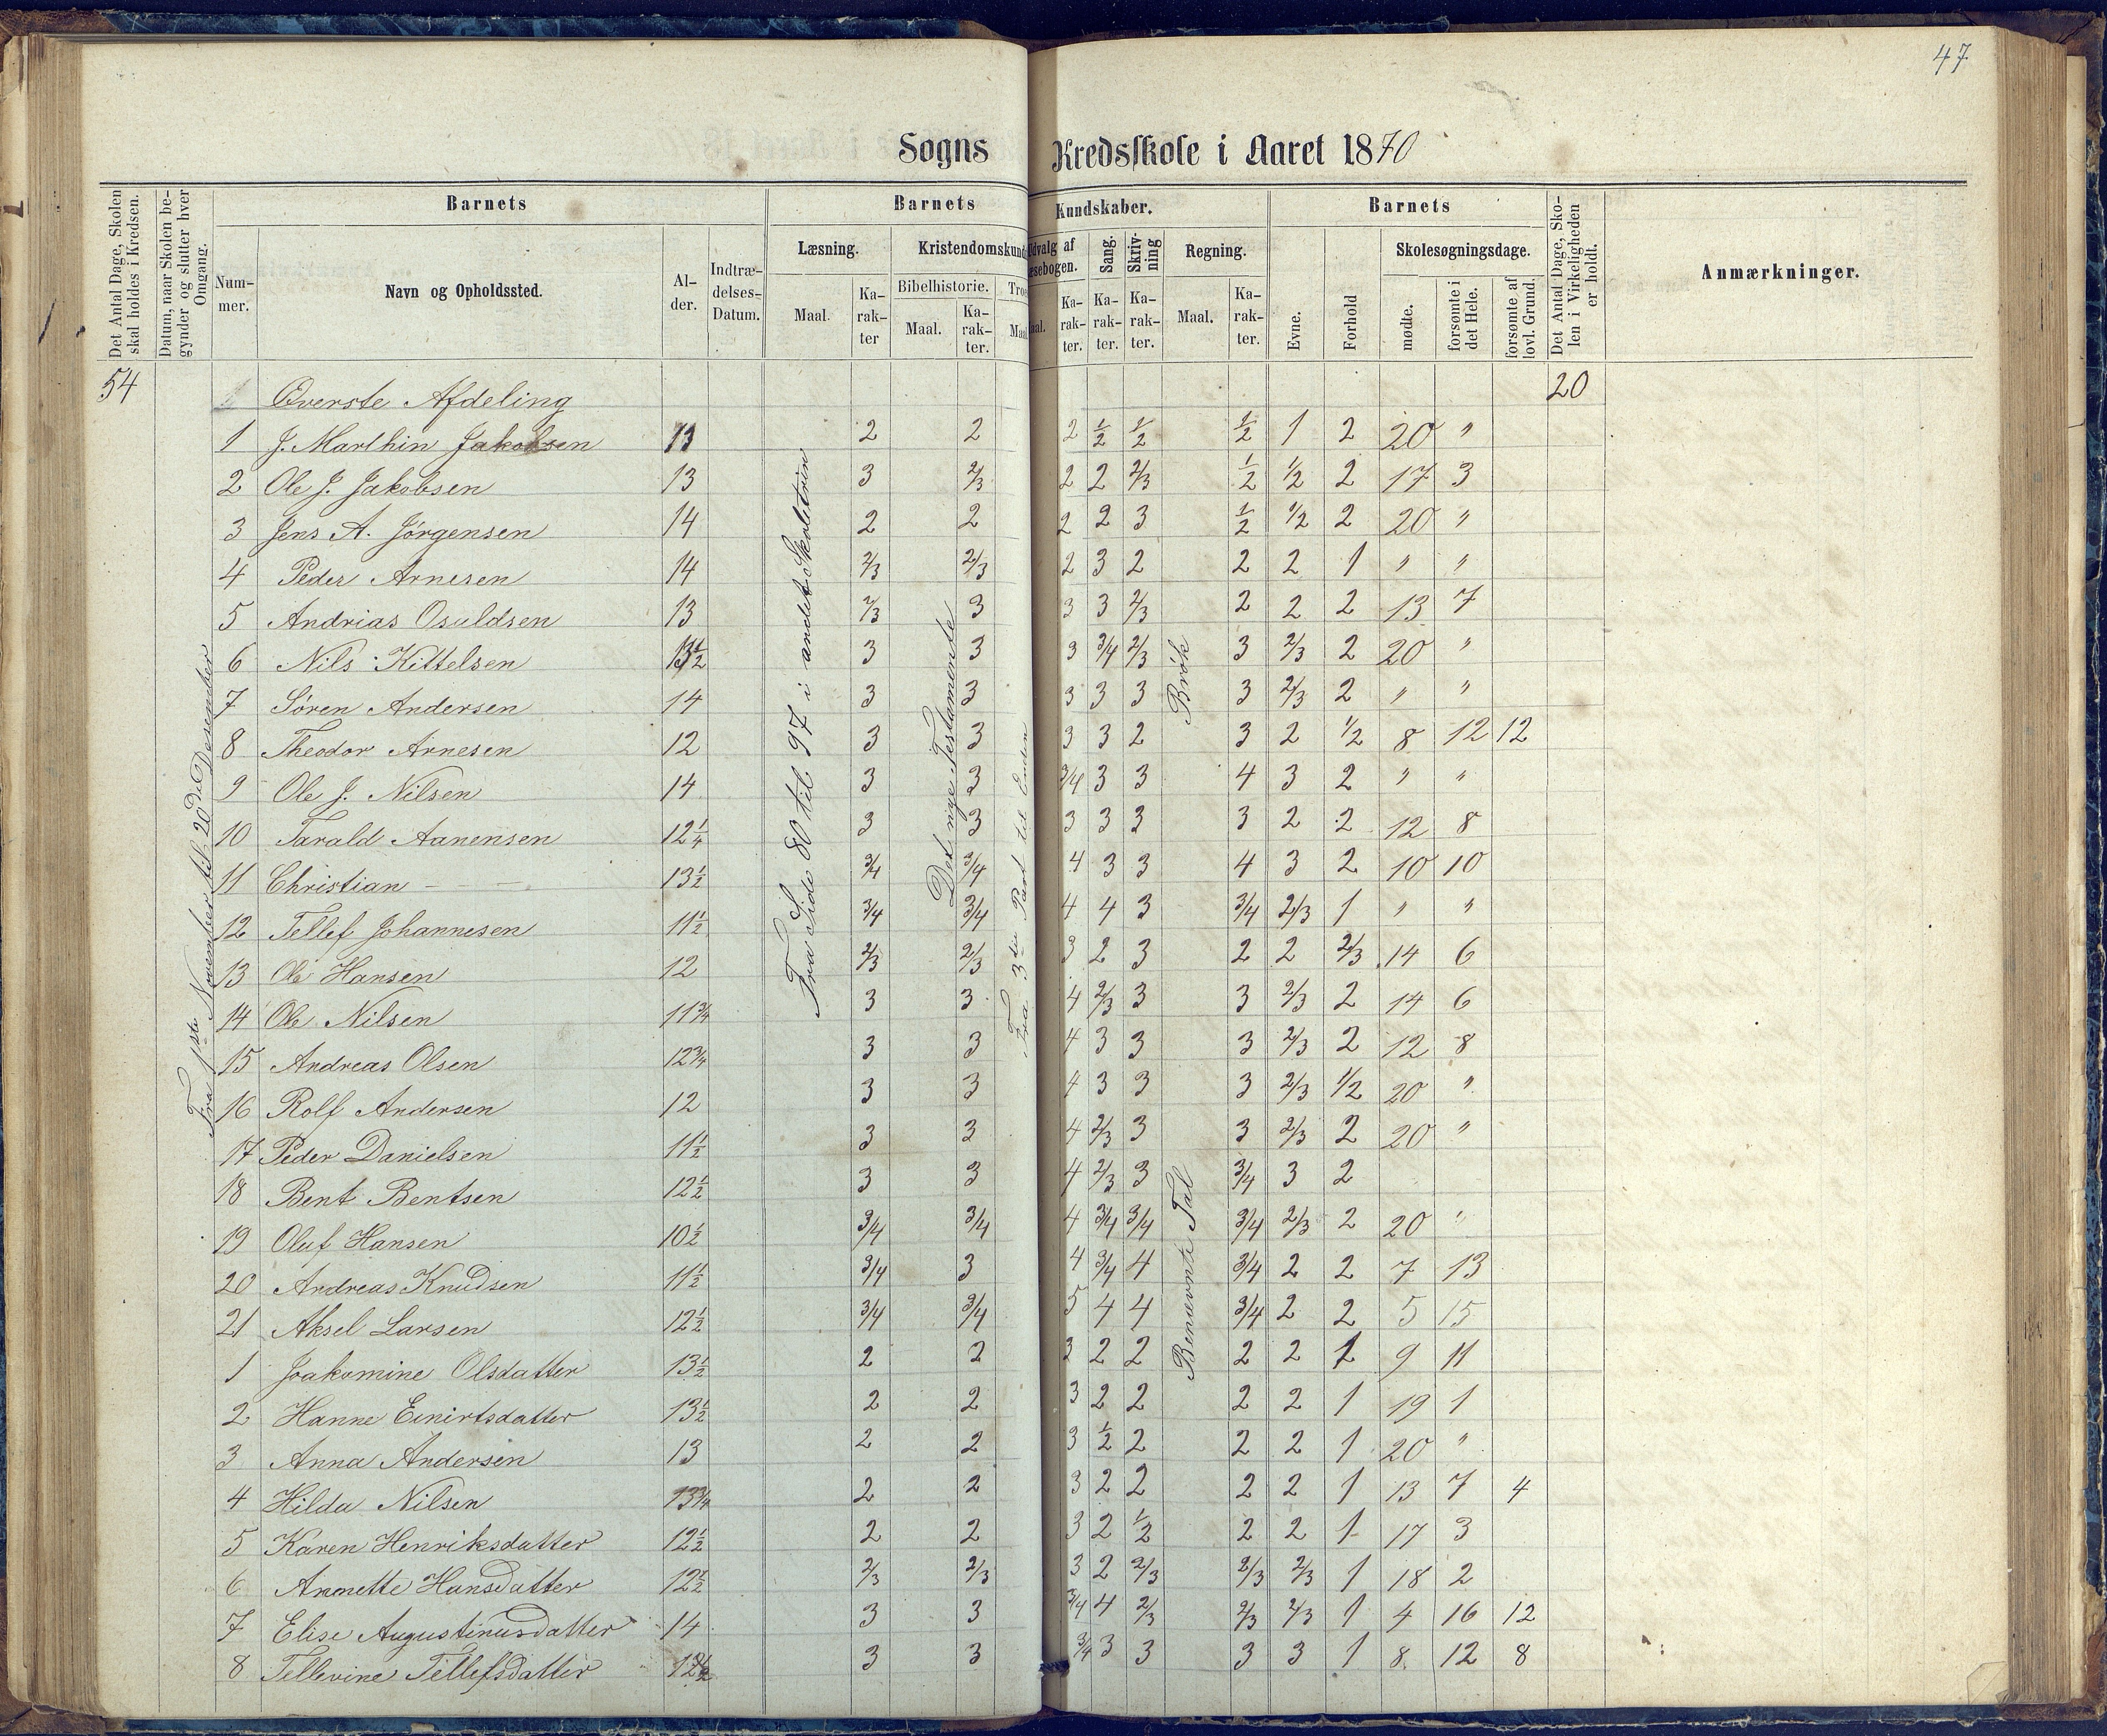 47
Sogns Kredsskole i Aaret 1870
Det Antal Dage, Skolen skal holdes i Kredsen.
Datum, naar Skolen begynder og slutter hver Omgang.
Barnets
Nummer.
Navn og Opholdssted.
Alder.
Indtrædelses-Datum.
Barnets Kundskaber.
Læsning.
Maal.
Karakter
Kristendomskund
Bibelhistorie.
Maal.
Karakter.
Troes
Maal
Udvalg af Læsebogen.
Maal.
Karakter.
Sang.
Karakter.
Skrivning
Karakter.
Regning.
Maal.
Karakter.
Barnets
Evne.
Forhold
Skolesøgningsdage.
mødte.
forsømte i det Hele.
forsømte af lovl. Grund.
Det Antal Dage, Skolen i Virkeligheden er holdt.
Anmærkninger.
54 Øverste Afdeling 20
1 J. Marthin Jakobsen 13 2 2 2 1/2 1/2 1/2 1 2 20 "
2 Ole J. Jakobsen 13 3 2/3 2 2 2/3 1/2 1/2 2 17 3
3 Jens A. Jørgensen 14 2 2 2 2 3 1/2 1/2 2 20 "
4 Peder Arnesen 14 2/3 2/3 2 3 2 2 2 1 " "
5 Andrias Osuldsen 13 2/3 3 3 3 2/3 2 2 2 13 7
6 Nils Kittelsen 13 1/2 3 3 3 3/4 2/3 3 2/3 2 20 "
7 Søren Andersen 14 3 3 3 3 3 3 2/3 2 " "
8 Theodor Arnesen 12 3 3 3 3 2 3 2 1/2 8 12 12
9 Ole J. Nilsen 14 3 3 3/4 3 3 4 3 2 " "
10 Tarald Aanensen 12 1/4 3 3 3 3 3 3 2 2 12 8
11 Christian - - - 13 1/2 3/4 3/4 4 3 3 4 3 2 10 10
12 Tellef Johannesen 11 1/2 3/4 3/4 4 4 3 3/4 2/3 1 " "
13 Ole Hansen 12 2/3 2/3 3 2 3 2 2 2/3 14 6
14 Ole Nilsen 11 3/4 3 3 4 2/3 3 3 2/3 2 14 6
15 Andreas Olsen 12 3/4 3 3 4 3 3 3 2/3 2 12 8
16 Rolf Andersen 12 3 3 4 3 3 3 2/3 1/2 20 "
17 Peder Danielsen 11 1/2 3 3 4 2/3 3 3 2/3 2 20 "
18 Bent Bentsen 12 1/2 3 3 4 2/3 3 3/4 3 2
19 Oluf Hansen 10 1/2 3/4 3/4 4 3/4 3/4 3/4 2/3 2 20 "
20 Andreas Knudsen 11 1/2 3/4 3 4 3/4 4 3/4 2 2 7 13
21 Aksel Larsen 12 1/2 3/4 3/4 5 4 4 3/4 2 2 5 15
1 Joakomine Olsdatter 13 1/2 2 2 3 2 2 2 2 1 9 11
2 Hanne Einirtsdatter 13 1/2 2 2 3 2 2 2 2 1 19 1
3 Anna Andersen 13 2 2 3 1/2 2 2 2 1 20 "
4 Hilda Nilsen 13 3/4 2 2 3 2 2 2 2 1 13 7 4
5 Karen Henriksdatter 12 1/2 2 2 3 2 1/2 2 2 1 17 3
6 Anmette Hansdatter 12 1/2 2/3 2/3 3 2 2/3 2/3 2/3 1 18 2
7 Elise Augustinusdatter 14 3 3 3/4 4 2/3 2/3 2/3 1 4 16 12
8 Tellevine Tellefsdatter 12 1/2 3 3 3/4 3 3 3 3 1 8 12 8
Fra 1ste November til 20de Desember
Fra Side 80 til 97 i andet Skoletrin
Det nye Testamente
Fra 3die Part til Enden
Brøk
Benævnte Tal